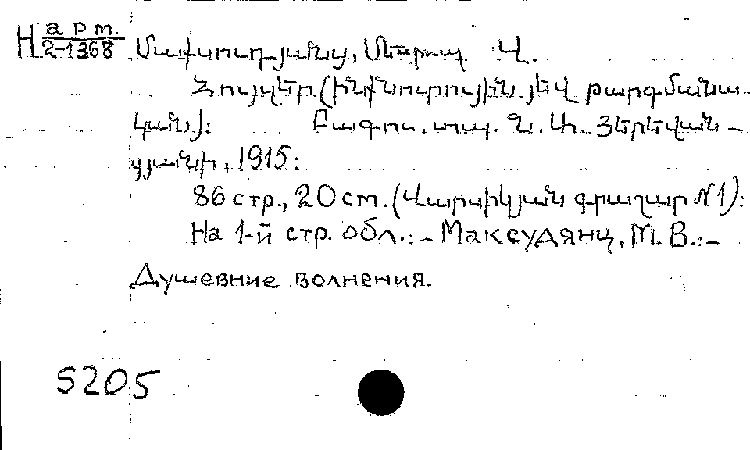 Н арм. 2-1368 Մաքսուդյանց, Մեսրոպ Վ.
Հույզեր. (Ինքնուրույն. յեվ թարգմանա-
կան.): Բագու. տպ. Ն. Ա. Յերեվան-
ցյանի, 1915:
86 стр., 20 ст. (Վարսիկյան գրադար №1):
На 1-й стр. обл.: - Максудянц, М. В.: -
Душевние волнения.
5205